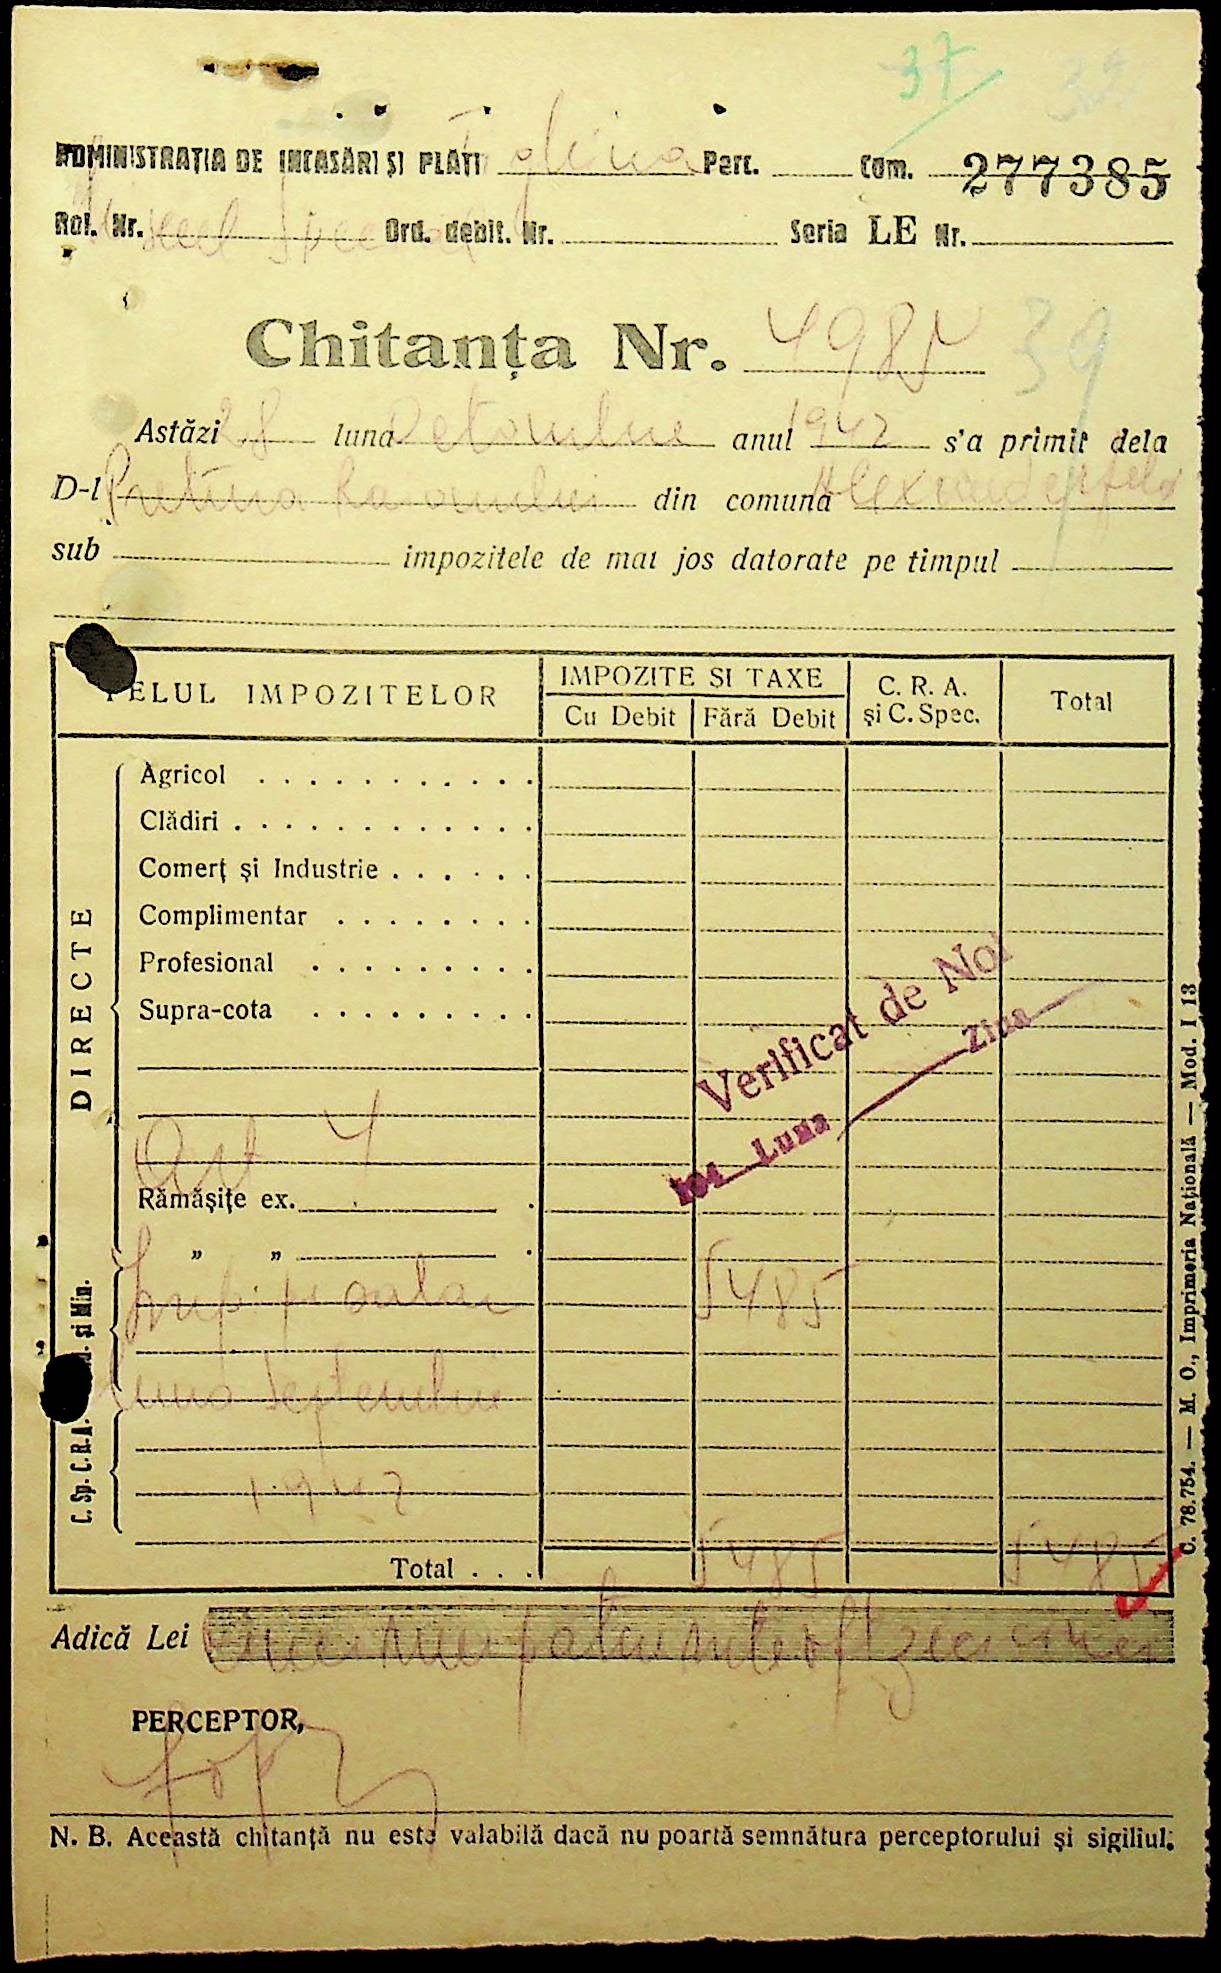 37
ADMINISTRAȚIA DE INCASĂRI ȘI PLĂȚI Perc. Com. 277385
Rol. Nr. Ord. debit. Nr. Seria LE Nr.
Chitanța Nr. 4985 39
Astăzi 28 luna Octombrie anul 1942 s'a primit dela
D-l Pretura Raionului din comuna Alexanderfeld
sub impozitele de mai jos datorate pe timpul
FELUL IMPOZITELOR
IMPOZITE SI TAXE
Cu Debit Fără Debit
C. R. A.
și C. Spec.
Total
DIRECTE
Agricol
Clădiri
Comerț și Industrie
Complimentar
Profesional
Supra-cota
Verificat de Noi
194 Luna Ziua
Art 4
Rămășițe ex.
„ „
Imp. pe salar 5485
luna Septembrie
1942
C. Sp. C.R.A. și Min.
Total 5485 5485
Adică Lei cinci mii patru sute opt zeci cinci
PERCEPTOR,
N. B. Această chitanță nu este valabilă dacă nu poartă semnătura perceptorului și sigiliul.
C. 78.754. — M. O., Imprimeria Națională — Mod. I 13